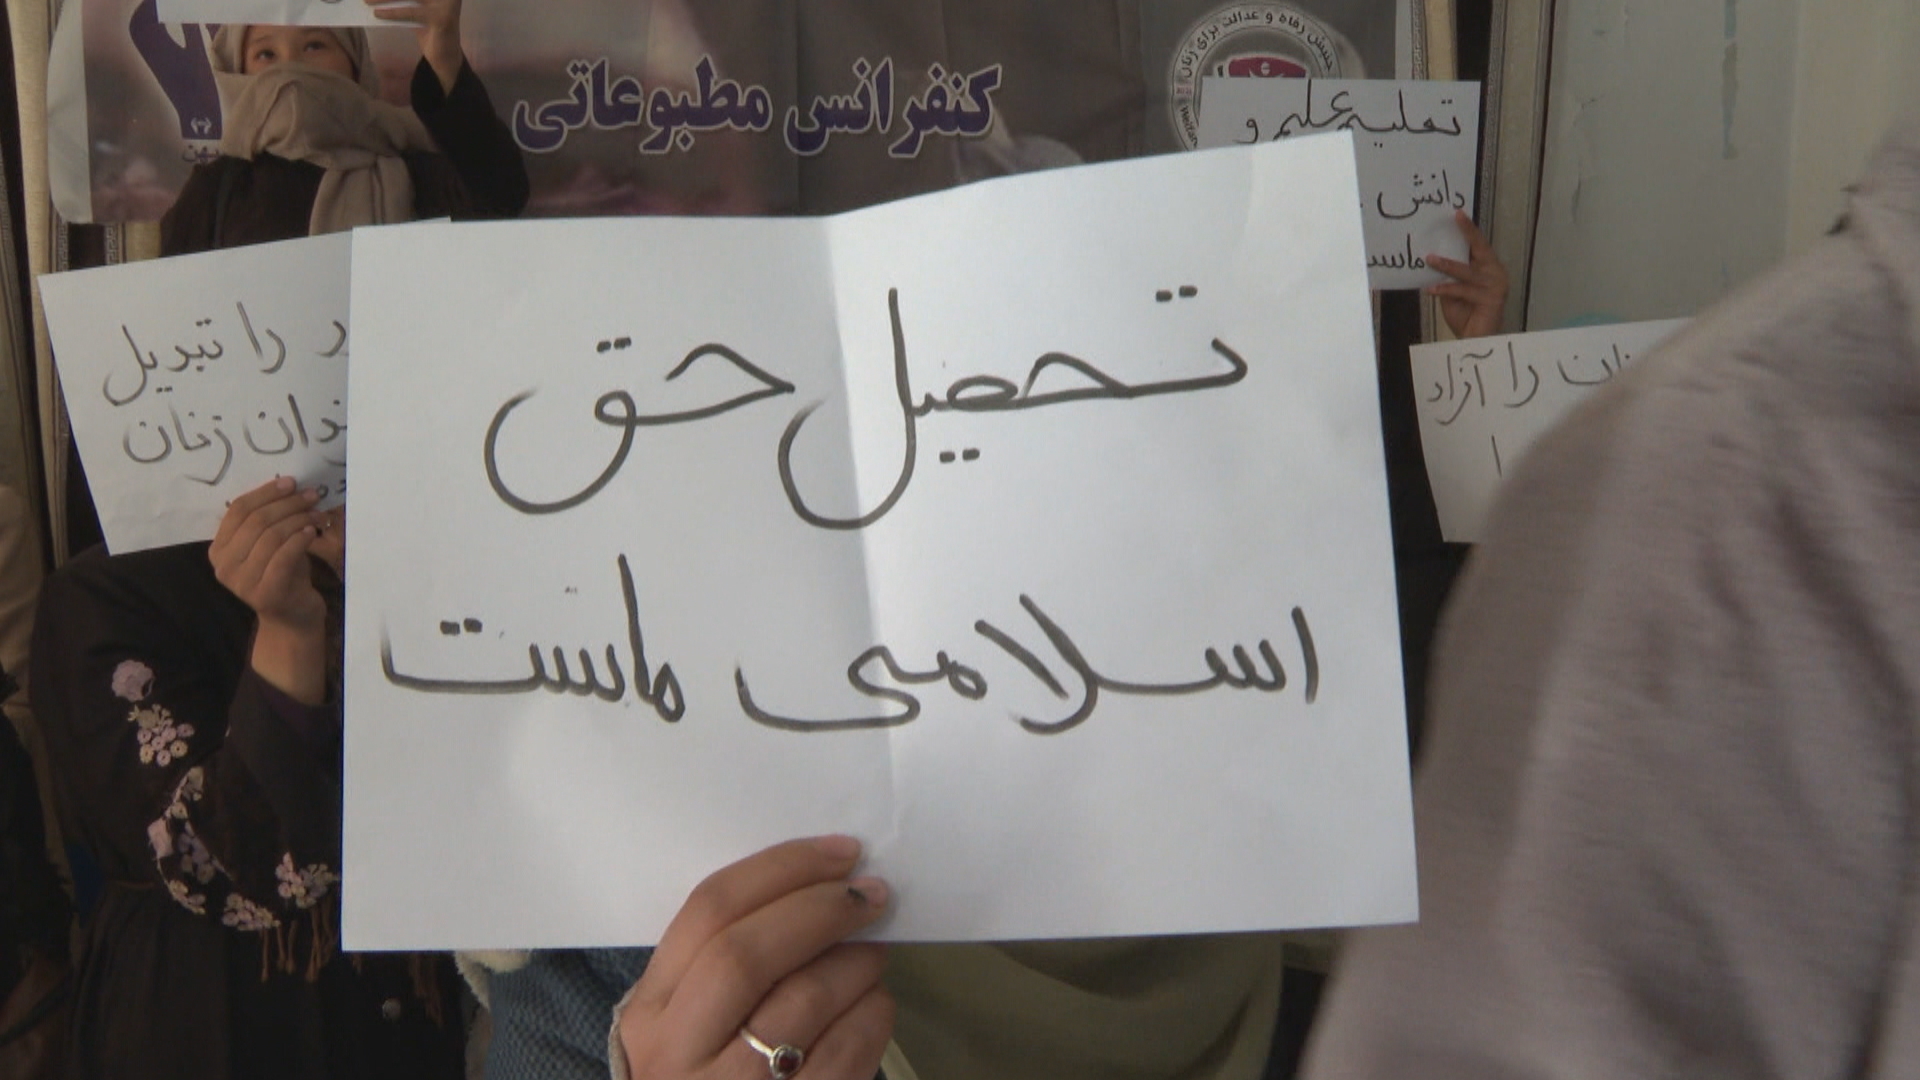 کنفرانس مطبوعاتی
جنبش رفاه و عدالت برای زنان
تعلیم علم و
دانش
ماست
را تبدیل
زنان
تحصیل حق
اسلامی ماست
را آزاد